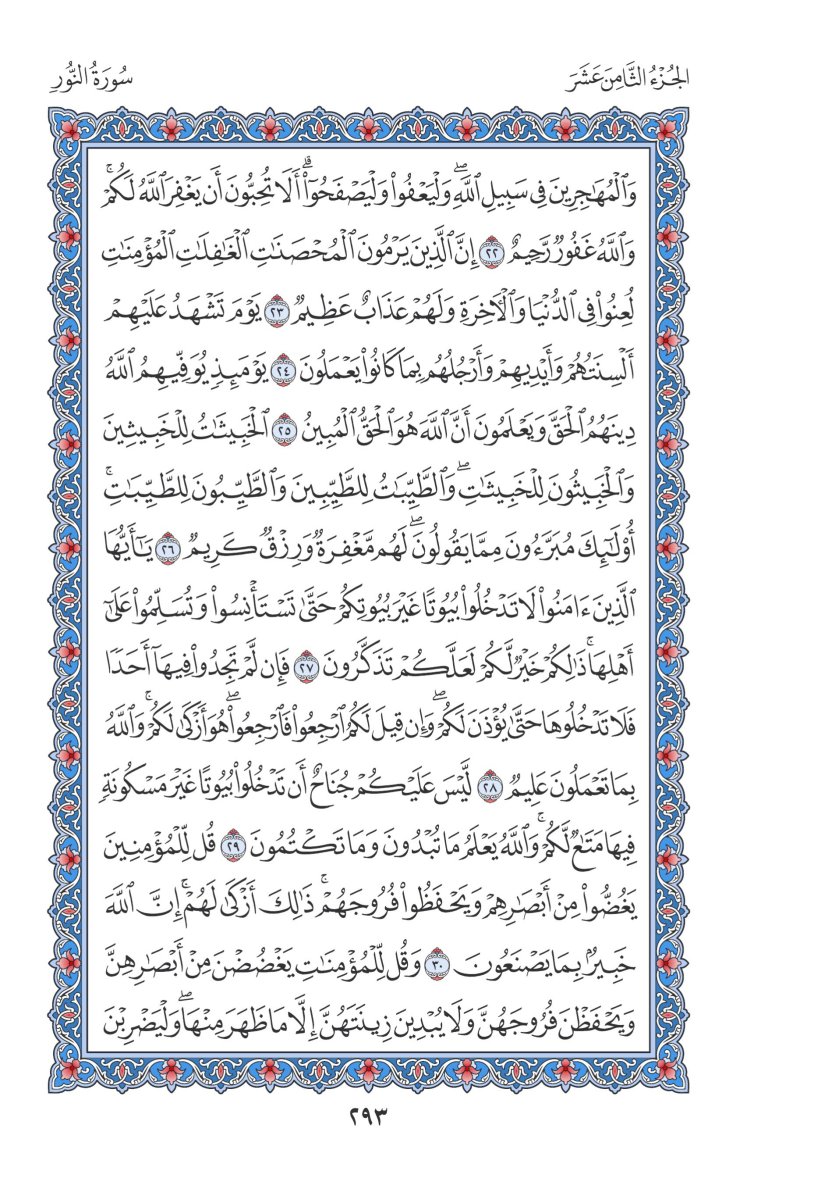 الجُزْءُ الثَّامِنَ عَشَرَ
سُورَةُ النُّورِ
وَٱلْمُهَٰجِرِينَ فِى سَبِيلِ ٱللَّهِۖ وَلْيَعْفُوا۟ وَلْيَصْفَحُوٓا۟ۗ أَلَا تُحِبُّونَ أَن يَغْفِرَ ٱللَّهُ لَكُمْۚ
وَٱللَّهُ غَفُورٌ رَّحِيمٌ ٢٢ إِنَّ ٱلَّذِينَ يَرْمُونَ ٱلْمُحْصَنَٰتِ ٱلْغَٰفِلَٰتِ ٱلْمُؤْمِنَٰتِ
لُعِنُوا۟ فِى ٱلدُّنْيَا وَٱلْءَاخِرَةِ وَلَهُمْ عَذَابٌ عَظِيمٌ ٢٣ يَوْمَ تَشْهَدُ عَلَيْهِمْ
أَلْسِنَتُهُمْ وَأَيْدِيهِمْ وَأَرْجُلُهُم بِمَا كَانُوا۟ يَعْمَلُونَ ٢٤ يَوْمَئِذٍ يُوَفِّيهِمُ ٱللَّهُ
دِينَهُمُ ٱلْحَقَّ وَيَعْلَمُونَ أَنَّ ٱللَّهَ هُوَ ٱلْحَقُّ ٱلْمُبِينُ ٢٥ ٱلْخَبِيثَٰتُ لِلْخَبِيثِينَ
وَٱلْخَبِيثُونَ لِلْخَبِيثَٰتِۖ وَٱلطَّيِّبَٰتُ لِلطَّيِّبِينَ وَٱلطَّيِّبُونَ لِلطَّيِّبَٰتِۚ
أُو۟لَٰٓئِكَ مُبَرَّءُونَ مِمَّا يَقُولُونَۖ لَهُم مَّغْفِرَةٌ وَرِزْقٌ كَرِيمٌ ٢٦ يَٰٓأَيُّهَا
ٱلَّذِينَ ءَامَنُوا۟ لَا تَدْخُلُوا۟ بُيُوتًا غَيْرَ بُيُوتِكُمْ حَتَّىٰ تَسْتَأْنِسُوا۟ وَتُسَلِّمُوا۟ عَلَىٰٓ
أَهْلِهَاۚ ذَٰلِكُمْ خَيْرٌ لَّكُمْ لَعَلَّكُمْ تَذَكَّرُونَ ٢٧ فَإِن لَّمْ تَجِدُوا۟ فِيهَآ أَحَدًا
فَلَا تَدْخُلُوهَا حَتَّىٰ يُؤْذَنَ لَكُمْۖ وَإِن قِيلَ لَكُمُ ٱرْجِعُوا۟ فَٱرْجِعُوا۟ۖ هُوَ أَزْكَىٰ لَكُمْۚ وَٱللَّهُ
بِمَا تَعْمَلُونَ عَلِيمٌ ٢٨ لَّيْسَ عَلَيْكُمْ جُنَاحٌ أَن تَدْخُلُوا۟ بُيُوتًا غَيْرَ مَسْكُونَةٍ
فِيهَا مَتَٰعٌ لَّكُمْۚ وَٱللَّهُ يَعْلَمُ مَا تُبْدُونَ وَمَا تَكْتُمُونَ ٢٩ قُل لِّلْمُؤْمِنِينَ
يَغُضُّوا۟ مِنْ أَبْصَٰرِهِمْ وَيَحْفَظُوا۟ فُرُوجَهُمْۚ ذَٰلِكَ أَزْكَىٰ لَهُمْۗ إِنَّ ٱللَّهَ
خَبِيرٌۢ بِمَا يَصْنَعُونَ ٣٠ وَقُل لِّلْمُؤْمِنَٰتِ يَغْضُضْنَ مِنْ أَبْصَٰرِهِنَّ
وَيَحْفَظْنَ فُرُوجَهُنَّ وَلَا يُبْدِينَ زِينَتَهُنَّ إِلَّا مَا ظَهَرَ مِنْهَاۖ وَلْيَضْرِبْنَ
٢٩٣